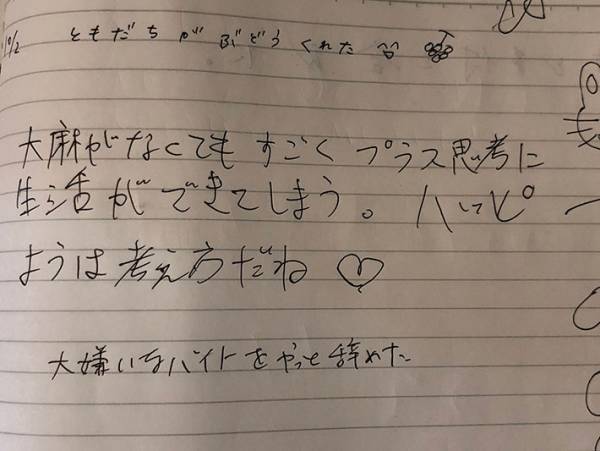 10/2 ともだちがぶどうくれた
大麻がなくても すごく プラス思考に
生活ができてしまう。ハッピー
ようは考え方だね ♡
大嫌いなバイトをやっと辞めた